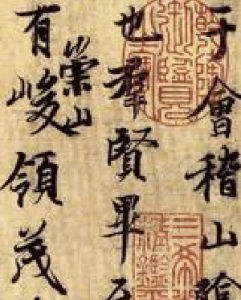 于會稽山陰
也羣賢畢至
有崇山峻領茂